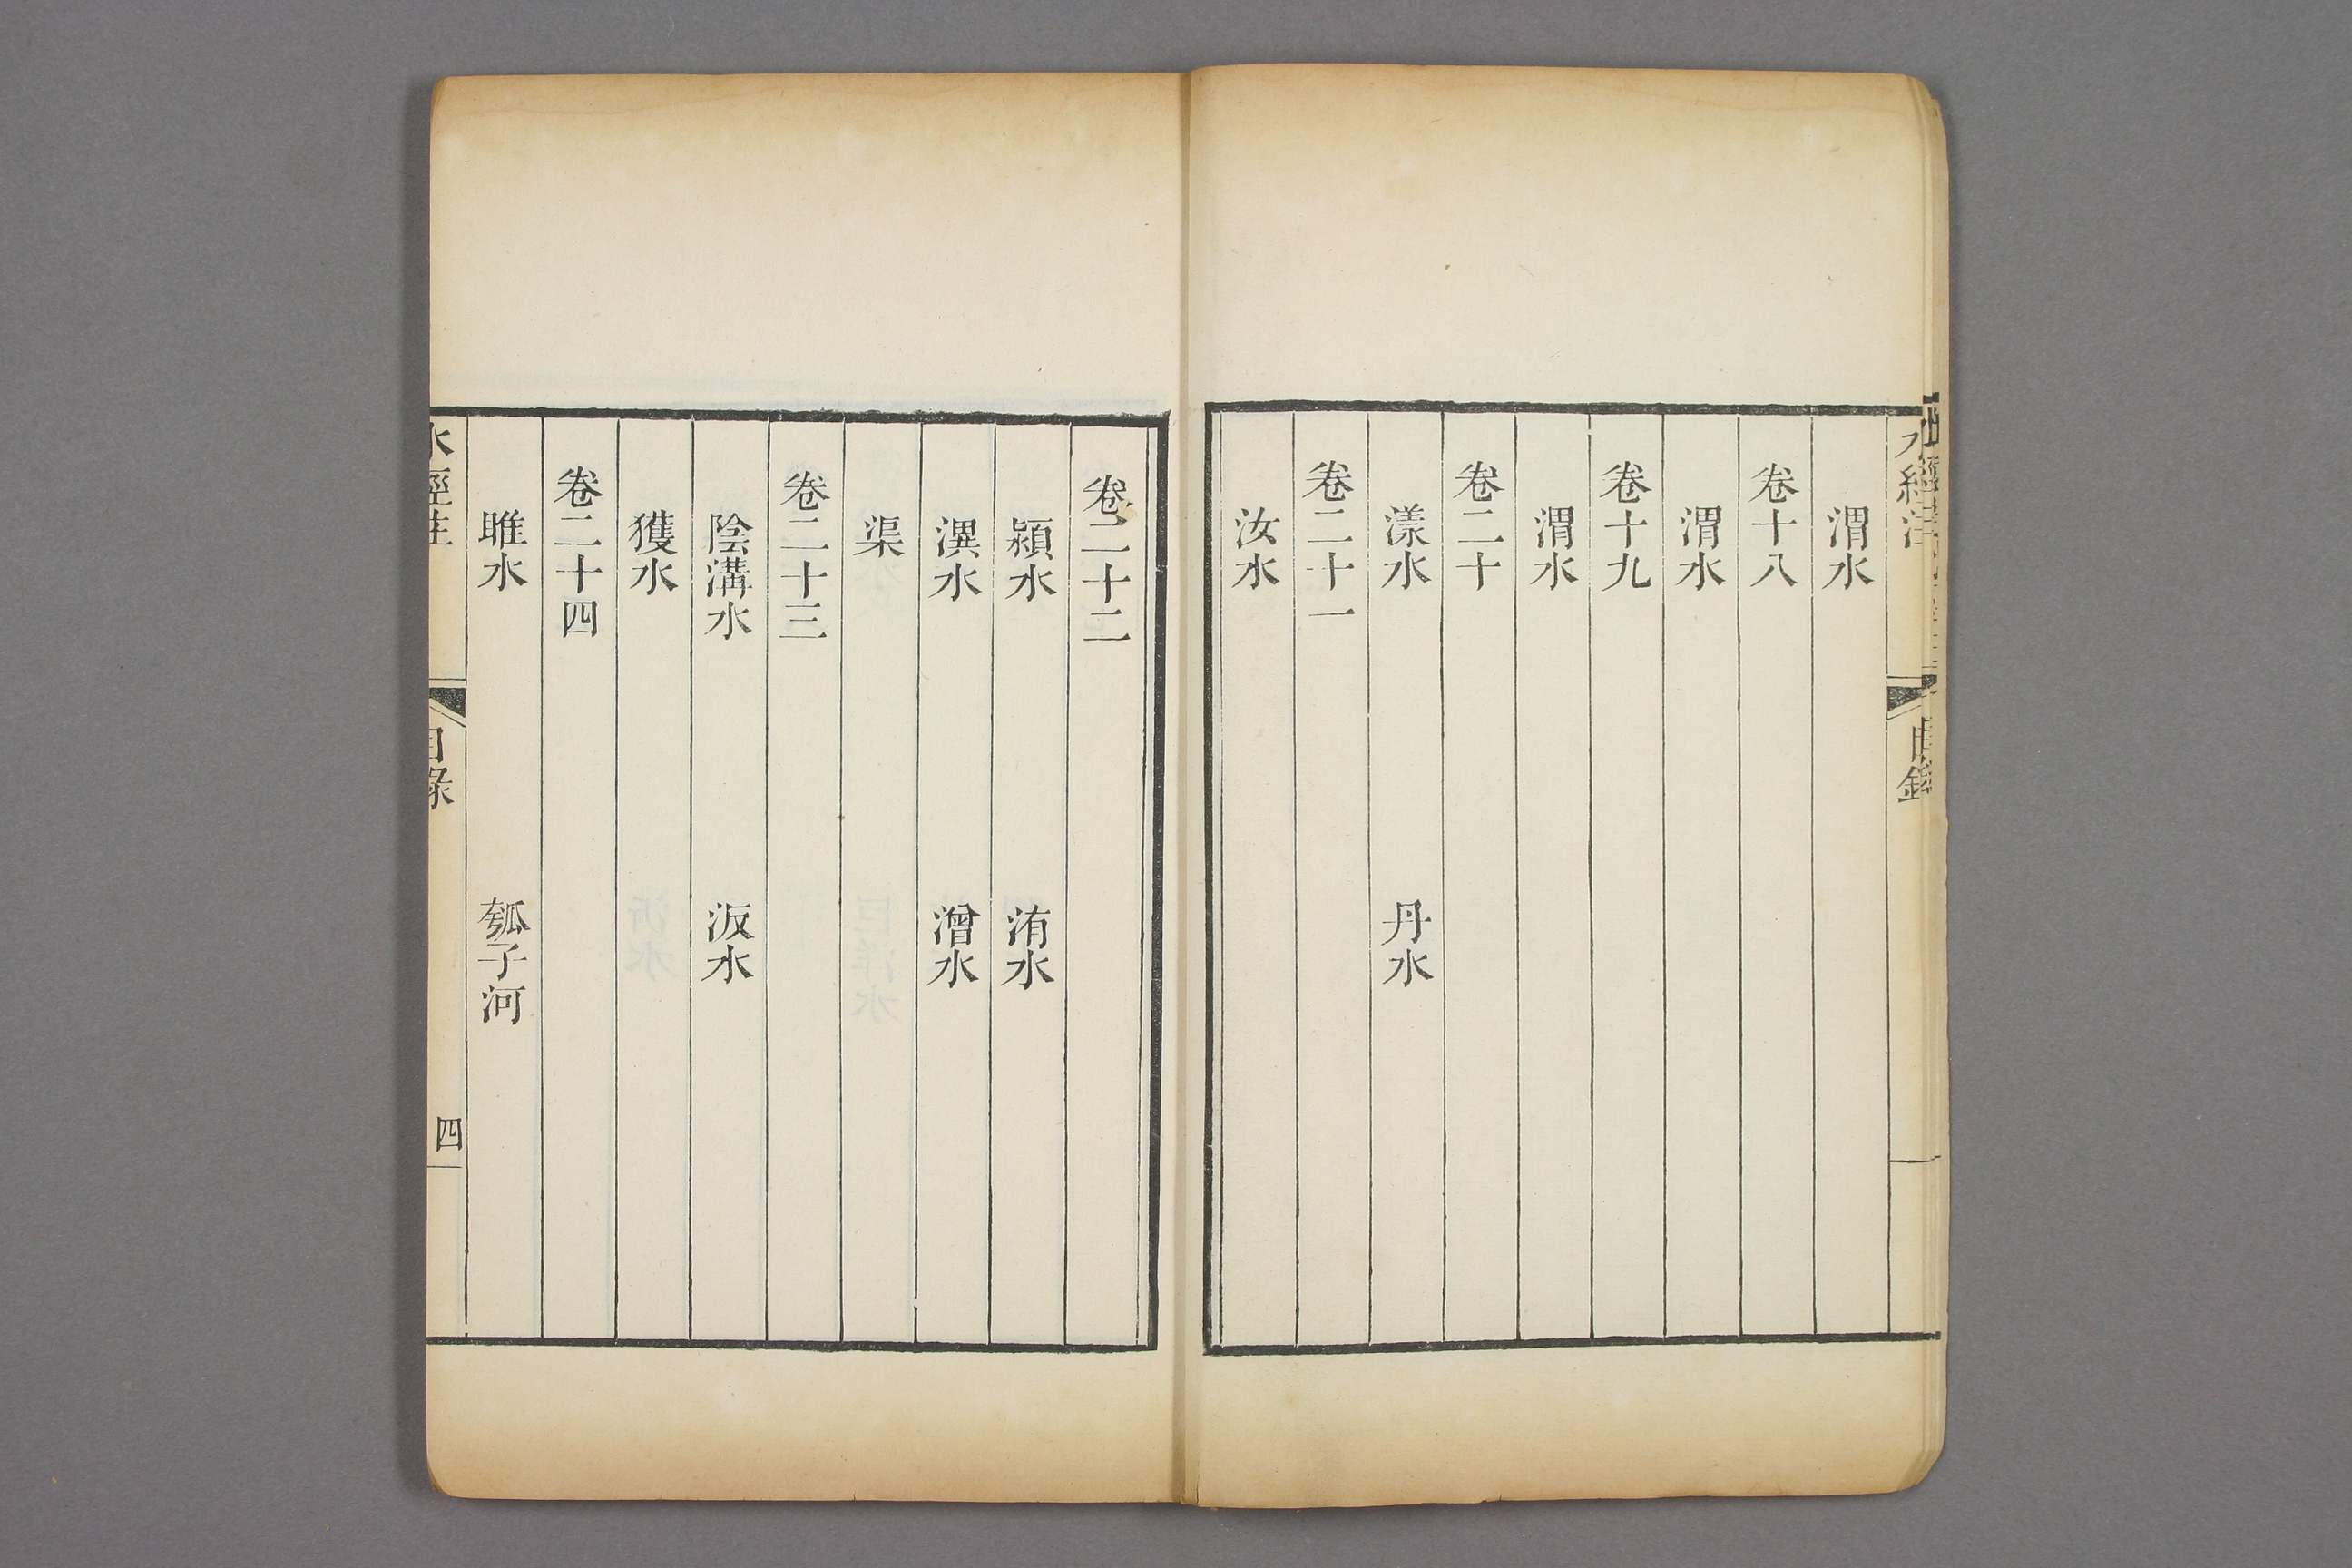 水經注
目錄
渭水
卷十八
渭水
卷十九
渭水
卷二十
漾水 丹水
卷二十一
汝水
卷二十二
潁水 洧水
潩水 潧水
渠
卷二十三
陰溝水 汳水
獲水
卷二十四
睢水 瓠子河
水經注
目錄
四